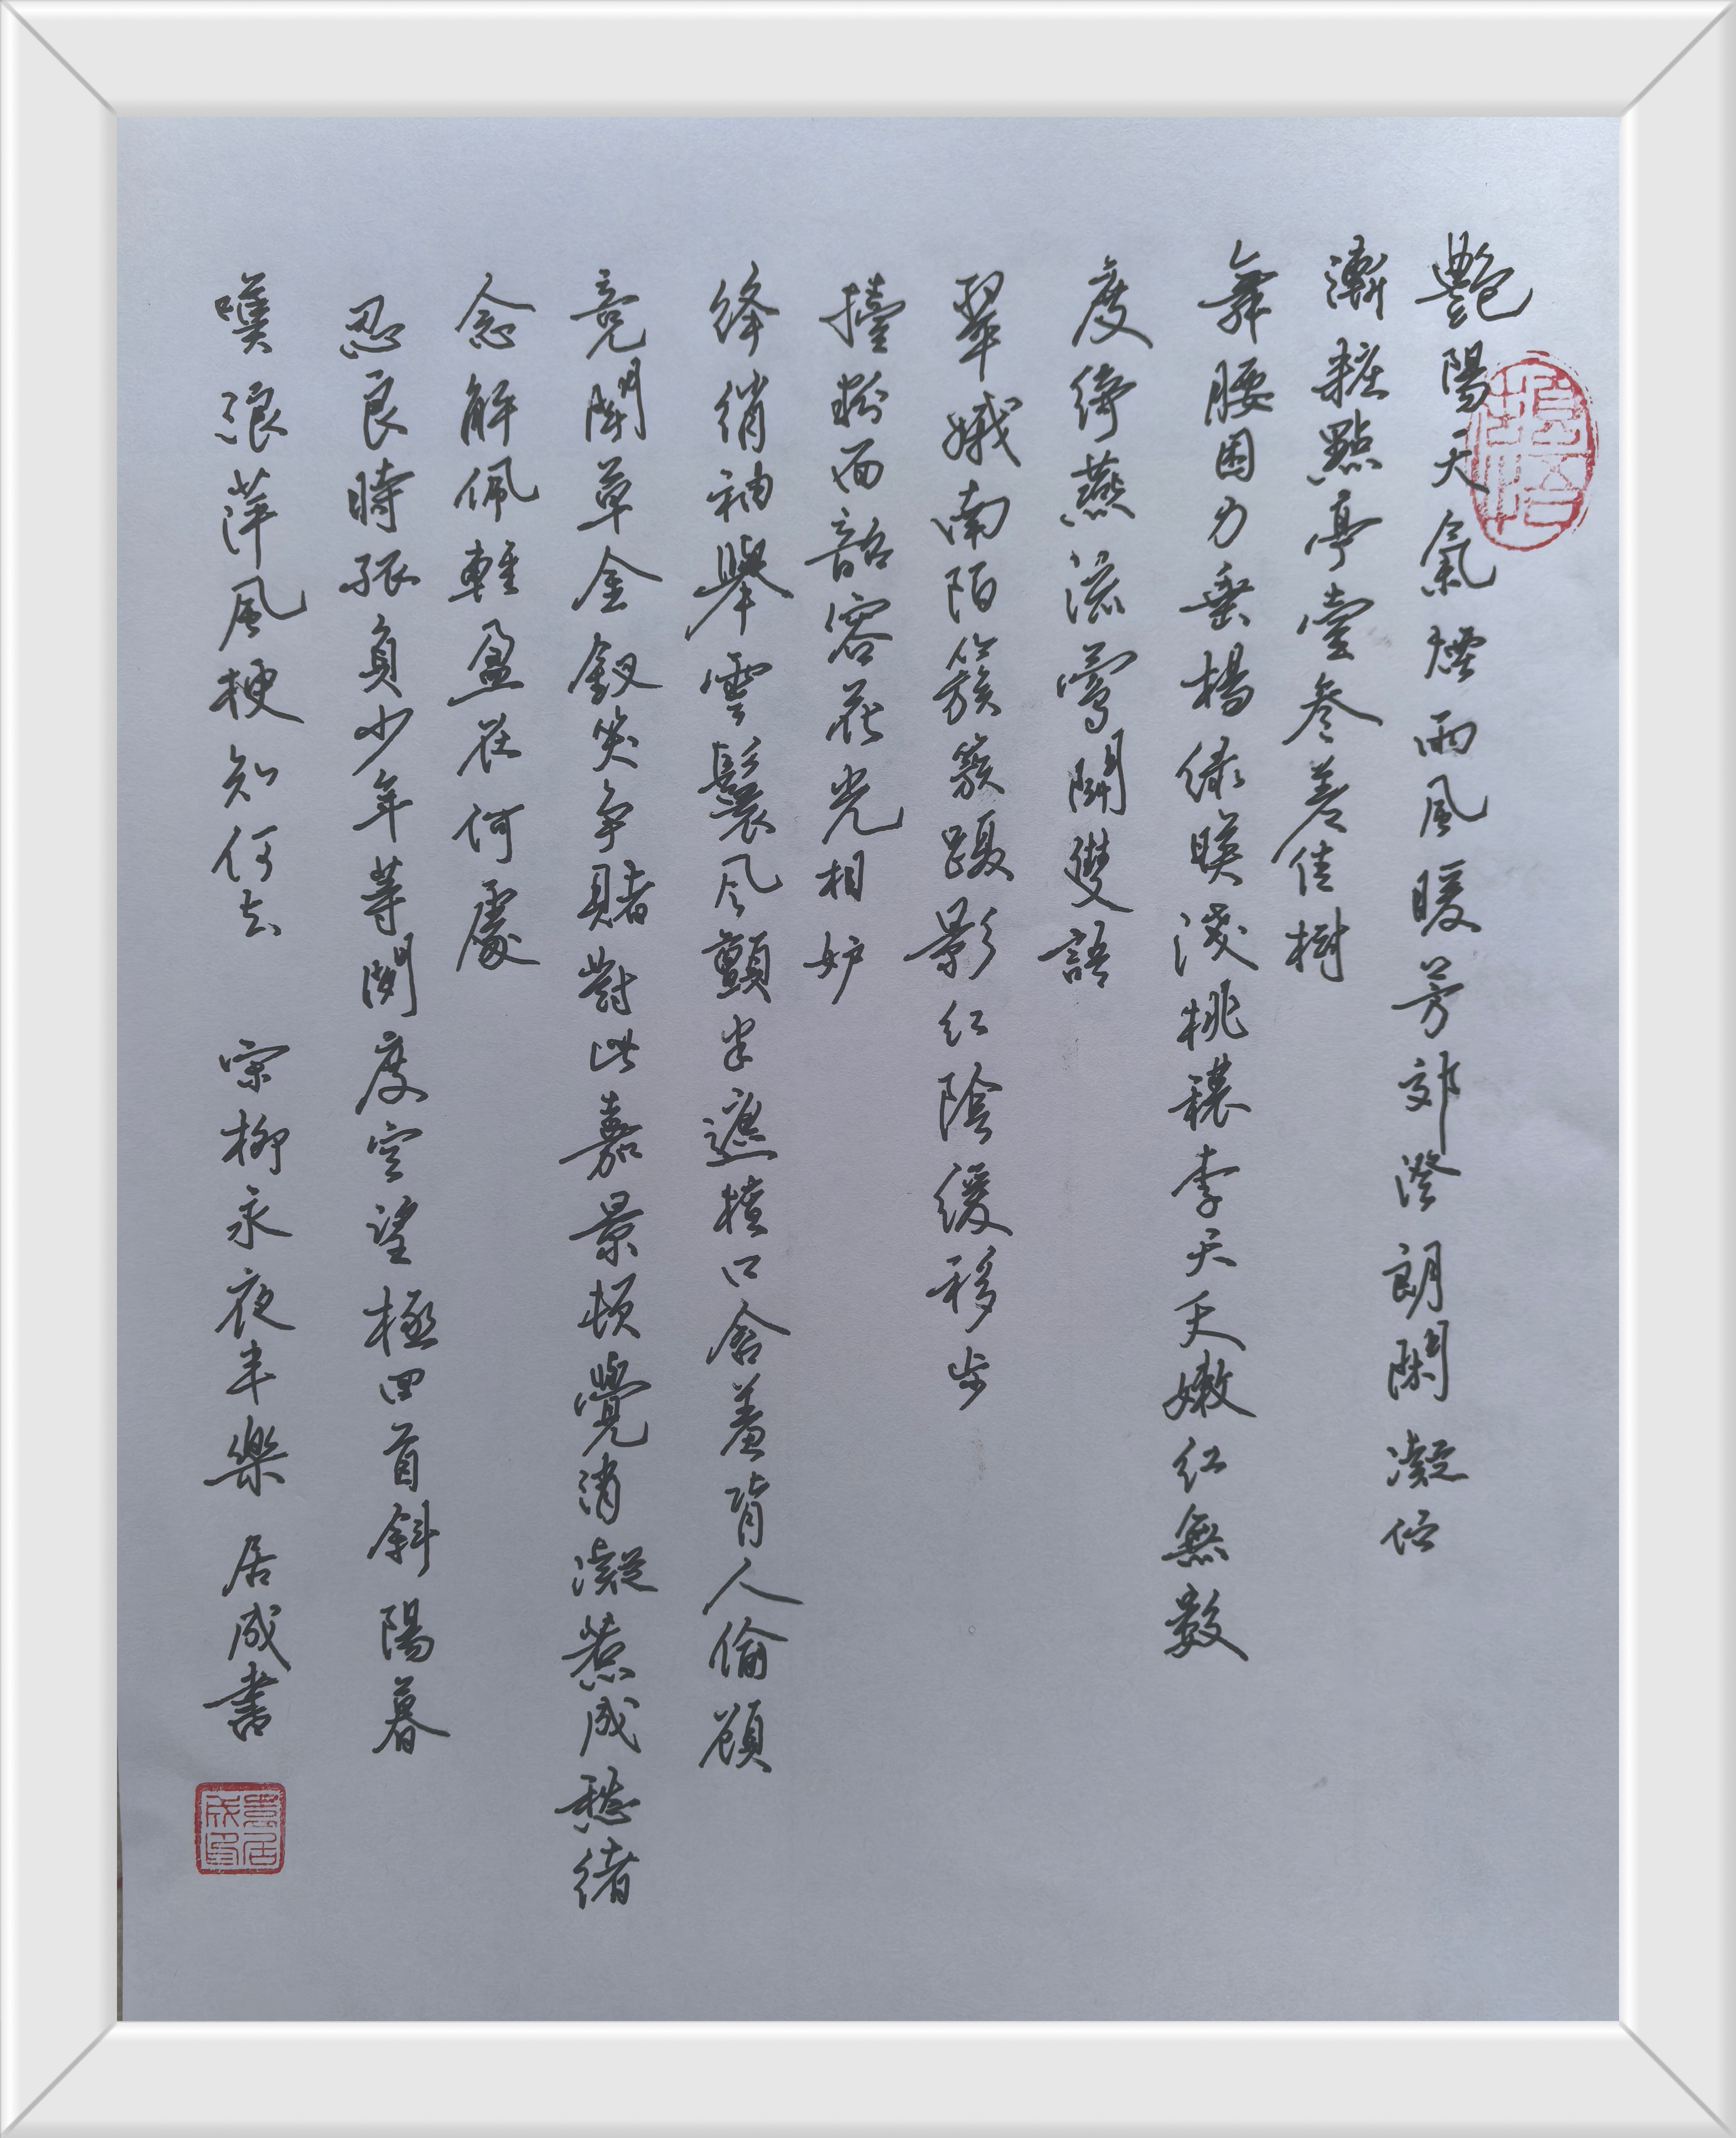 艷陽天氣煙雨風暖芳郊澄朗閑凝佇
漸粧點亭臺參差佳樹
舞腰困力垂楊綠暎淺桃穠李夭夭嫩紅無數
度綺燕流鶯鬪雙語
翠娥南陌簇簇躡影紅陰緩移步
擡粉面韶容花光相妒
絳綃袖舉雲鬟風顫半遮檀口含羞背人偷顧
竞鬪草金釵笑争賭對此嘉景頓覺消凝惹成愁緒
念解佩輕盈在何處
忍良時孤負少年等閑度空望極回首斜陽暮
嘆浪萍風梗知何去 宋柳永夜半樂 居成書